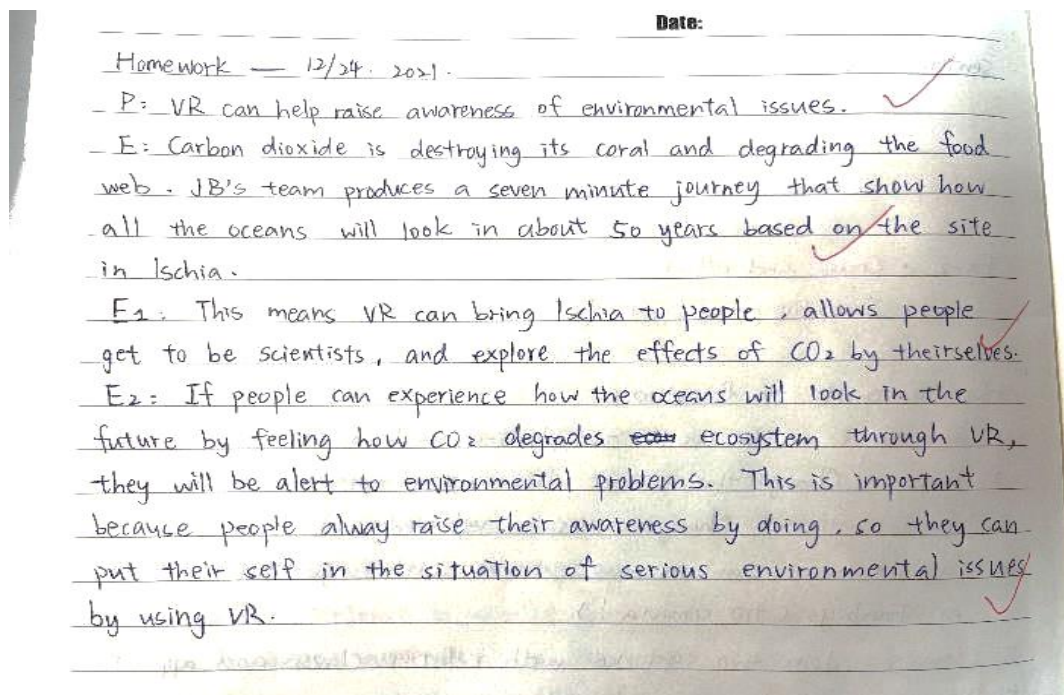 Date:
Homework — 12/24. 2021.
P: VR can help raise awareness of environmental issues.
E: Carbon dioxide is destroying its coral and degrading the food
web. JB's team produces a seven minute journey that show how
all the oceans will look in about 50 years based on the site
in Ischia.
E1: This means VR can bring Ischia to people, allows people
get to be scientists, and explore the effects of CO2 by theirselves.
E2: If people can experience how the oceans will look in the
future by feeling how CO2 degrades ecosystem through VR,
they will be alert to environmental problems. This is important
because people alway raise their awareness by doing, so they can
put their self in the situation of serious environmental issues
by using VR.